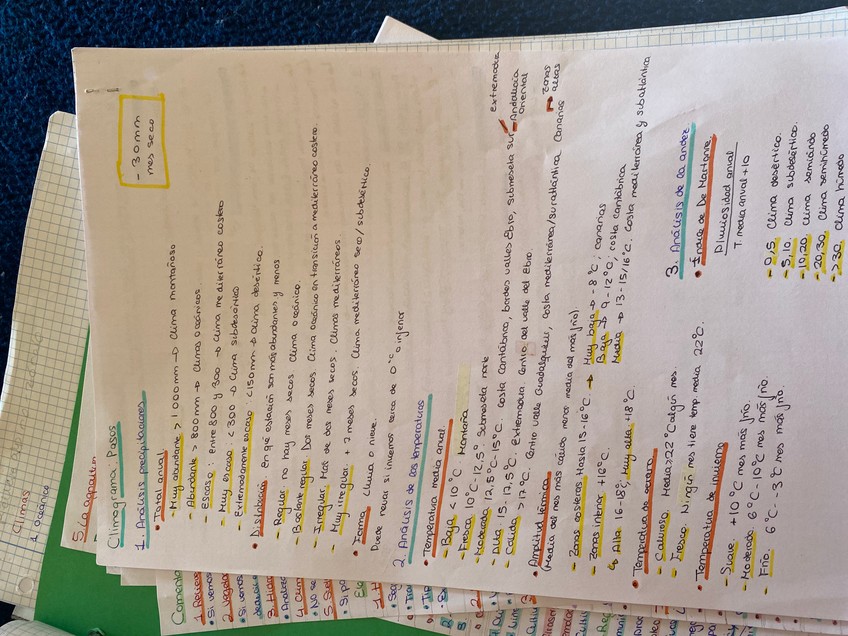 Climograma: Pasos
- 30 mm
mes seco
1. Análisis precipitaciones
• Total anual
- Muy abundante > 1000 mm → Clima montañoso
- Abundante > 800 mm → Climas oceánicos.
- Escaso: entre 800 y 300 → Clima mediterráneo costero
- Muy escaso: < 300 → Clima subdesértico
- Extremadamente escaso: < 150 mm → Clima desértico.
• Distribución: En qué estación son más abundantes y menos
- Regular: no hay meses secos. Clima oceánico.
- Bastante regular: Dos meses secos. Clima oceánico en transición a mediterráneo costero.
- Irregular: Más de dos meses secos. Climas mediterráneos
- Muy irregular: + 7 meses secos. Clima mediterráneo seco/subdesértico.
• Forma: lluvia o nieve.
Puede nevar si invernos cerca de 0°C o inferior
2. Análisis de las temperaturas
• Temperatura media anual.
- Baja < 10°C. Montaña
- Fresca 10°C - 12,5°. Submeseta norte
- Moderada 12,5°C - 15°C. Costa Cantábrica, bordes valles Ebro, submeseta sur
- Alta: 15 - 17,5°C. Extremadura, centro del valle del Ebro.
- Cálida > 17°C. Centro valle Guadalquivir, costa mediterránea/suratlántica, Canarias
Extremadura
Andalucía
oriental
zonas
altas
• Amplitud térmica
(Media del mes más cálido menos media del más frío).
- Zonas costeras: Hasta 15 - 16°C. → Muy baja → - 8°C; canarias
Baja → 9 - 12°C; costa cantábrica
Media → 13 - 15/16°C. Costa mediterránea y subatlántica
- Zonas interior +16°C.
↳ Alta: 16 - 18°; Muy alta: +18°C.
• Temperatura de verano
- Caluroso. Media > 22°C algún mes.
- Fresco. Ningún mes tiene temp. media 22°C.
• Temperatura de invierno
- Suave. +10°C mes más frío.
- Moderado 6°C - 10°C mes más frío.
- Frío. 6°C - -3°C mes más frío.
3. Análisis de la aridez
• Índice de De Martonne.
Pluviosidad anual
T. media anual + 10
- 0,5. Clima desértico.
- 5,10. Clima subdesértico.
- 10,20. Clima semiárido
- 20,30. Clima semihúmedo
- > 30. Clima húmedo
Climas
1. Oceánico